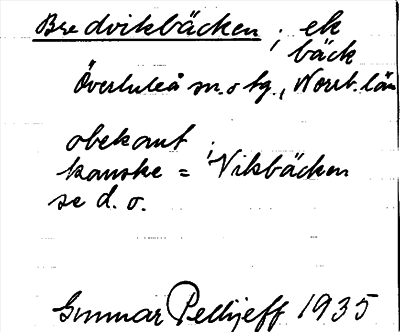 Bredvikbäcken ; ek
bäck
Överluleå sn. o tg., Norrb. län
obekant ;
kanske = Vikbäcken
se d. o.
Gunnar Pellijeff 1935